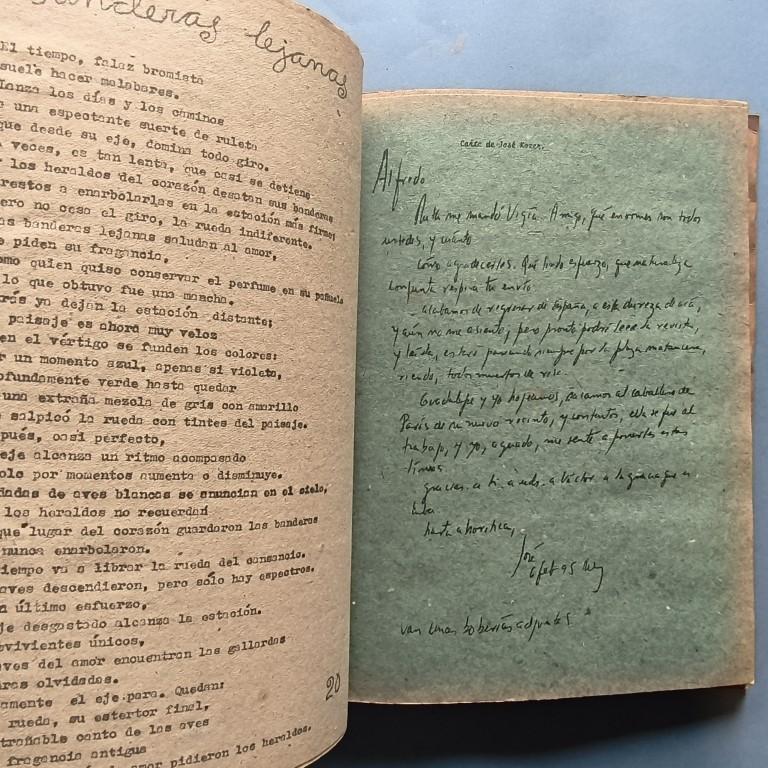 banderas lejanas
El tiempo, falaz bromista
suele hacer malabares.
Lanza los días y los caminos
una espectante suerte de ruleta
que desde su eje, domina todo giro.
veces, es tan lenta, que casi se detiene
los heraldos del corazón desatan sus banderas
prestos a enarbolarlas en la estación más firme;
pero no cesa el giro, la rueda indiferente.
as banderas lejanas saludan al amor,
e piden su fragancia.
omo quien quiso conservar el perfume en su pañuelo
lo que obtuvo fue una mancha.
rás ya dejan la estación distante;
paisaje es ahora muy veloz
en el vértigo se funden los colores:
r un momento azul, apenas si violeta,
ofundamente verde hasta quedar
una extraña mezcla de gris con amarillo
salpicó la rueda con tintes del paisaje.
pués, casi perfecto,
eje alcanza un ritmo acompasado
olo por momentos aumenta o disminuye.
dadas de aves blancas se anuncian en el cielo,
los heraldos no recuerdan
que lugar del corazón guardaron las banderas
nunca enarbolaron.
iempo va a librar la rueda del cansancio.
aves descendieron, pero sólo hay espectros.
n último esfuerzo,
je desgastado alcanza la estación.
vivientes únicos,
aves del amor encuentran las gallardas
ras olvidadas.
amente el eje para. Quedan:
rueda, su estertor final,
trañable canto de las aves
fragancia antigua
amor pidieron los heraldos.
20
Carta de José Kozer.
Alfredo
Ruth me mandó Vigía. Amigo, qué enormes son todos
ustedes, y cuánto
cómo agradecerles. Qué lindo esfuerzo, que naturaleza
conjunta respira tu envío.
acabamos de regresar de España, a esta dureza de acá,
y aún no me asiento, pero pronto podré leer la revista,
y leída, estaré paseando siempre por la plaza matancera,
riendo, todos muertos de risa.
Guadalupe y yo
París de su nuevo recinto, y contentos, ella se fue al
trabajo, y yo, aguado, me senté a ponerles estas
líneas.
gracias a ti a uds. a
hasta ahorita,
José
6 feb 95 NY
van unas boberías adjuntas